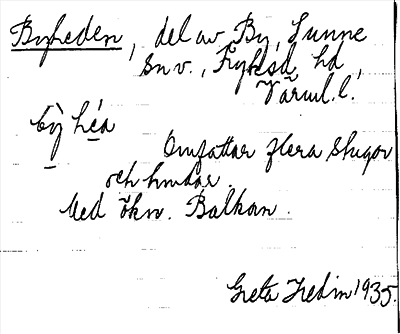 Byheden, del av By, Sunne
sn v., Fryksd. hd,
Värml. l.
bỳ héa
Omfattar flera stugor
och hmdar.
Med ökn. Balkan.
Greta Hedin 1935.